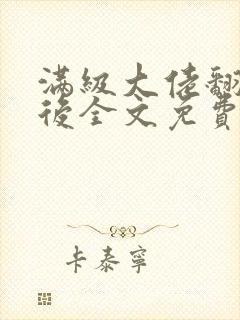 滿級大佬翻
後全文免費
卡泰寧